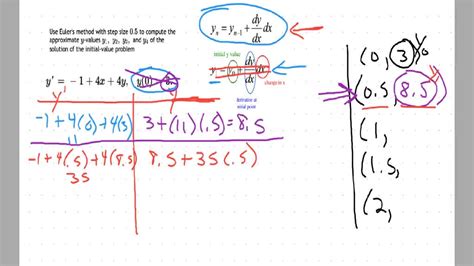 Use Euler's method with step size 0.5 to compute the
approximate y-values y₁, y₂, y₃, and y₄ of the
solution of the initial-value problem
y' = −1 + 4x + 4y, y(0) =
yₙ = yₙ₋₁ + dy/dx dx
initial y value
y = y₀ + dy/dx dx
change in x
derivative at
initial point
y'
y
-1+4(0)+4(3)
11
3+(11)(.5)=8.5
-1+4(.5)+4(8.5)
35
8.5+35(.5)
(0, 3) y₀
(0.5, 8.5) y₁
(1,
(1.5,
(2,